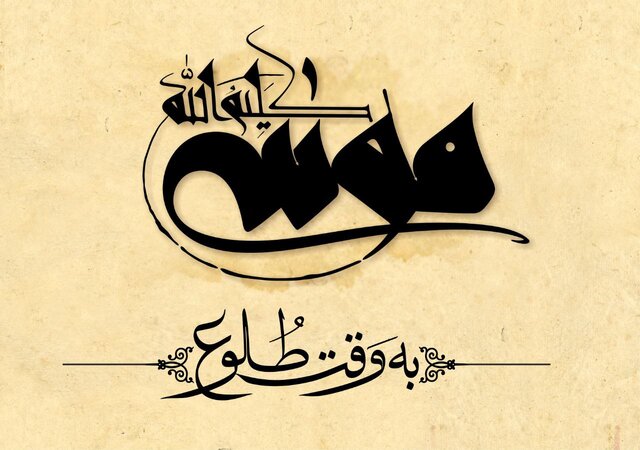 موسی کلیم‌الله
به وَقت طُلوع